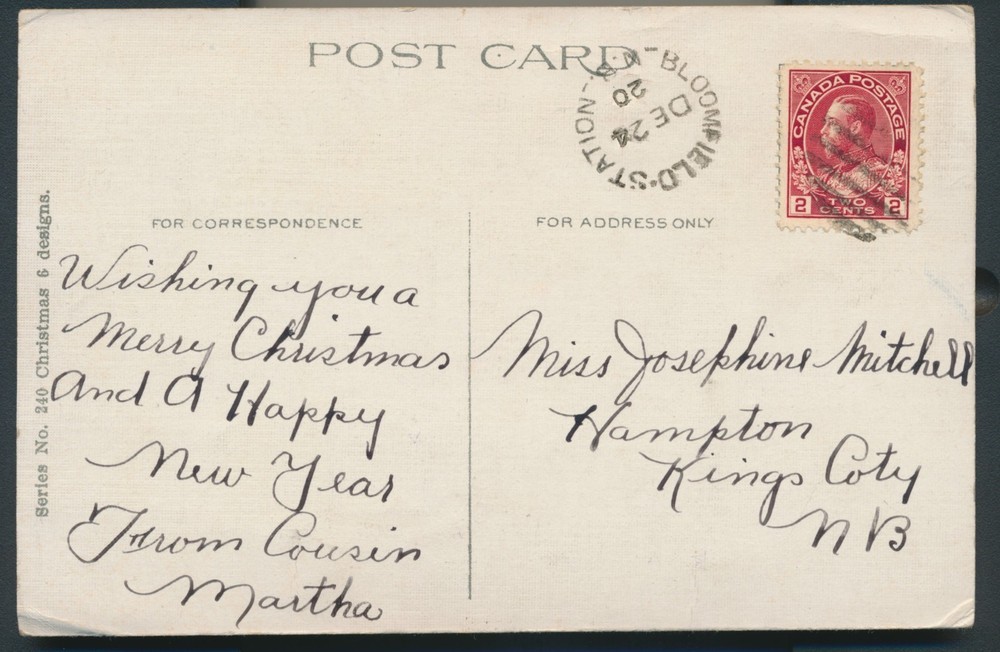 POST CARD
BLOOMFIELD·STATION
N B
DE 24
20
CANADA POSTAGE
2 TWO CENTS 2
FOR CORRESPONDENCE
FOR ADDRESS ONLY
Series No. 240 Christmas 6 designs.
Wishing you a
Merry Christmas
And A Happy
New Year
From Cousin
Martha
Miss Josephine Mitchell
Hampton
Kings Coty
NB